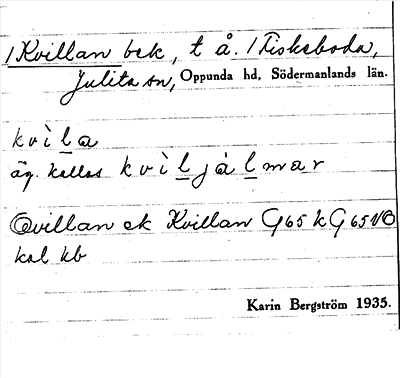 1 Kvillan bek, t å. 1 Fiskeboda,
Julita sn, Oppunda hd, Södermanlands län.
kvìla
äg. kallas kvìljálmar
Qvillan ek Kvillan G65 k G65VO
kal kb
Karin Bergström 1935.